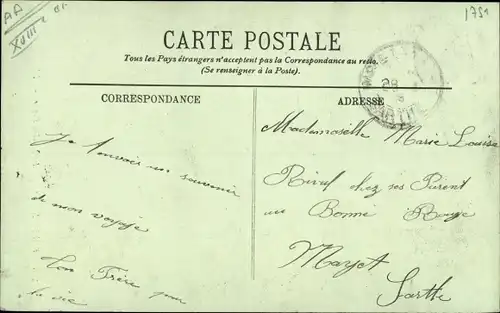 AA
XVIII
1751
CARTE POSTALE
Tous les Pays étrangers n'acceptent pas la Correspondance au recto.
(Se renseigner à la Poste).
CORRESPONDANCE
Je t'envois un souvenir
de mon voyage
Ton Frère pour
la vie
ADRESSE
Mademoiselle Marie Louise
chez ses Parent
au Bonne Rouge
Mayet
Sarthe